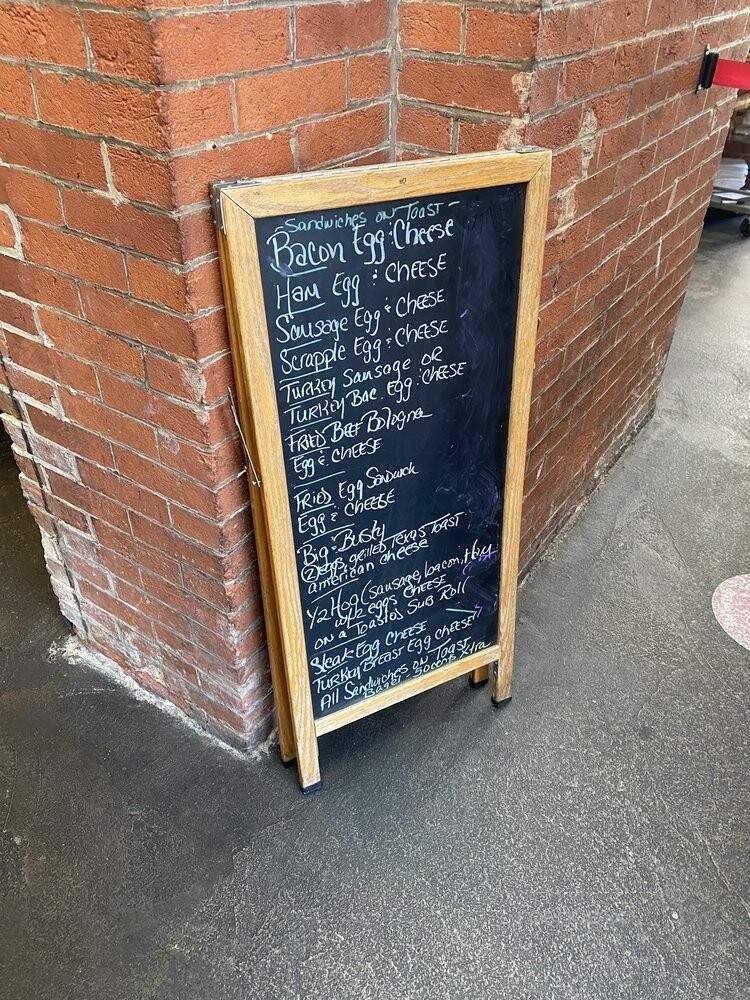 -Sandwiches on Toast-
Bacon Egg & Cheese
Ham Egg & CHEESE
Sausage Egg & CHEESE
Scrapple Egg & CHEESE
Turkey Sausage OR
Turkey Bac. Egg & CHEESE
FRIED BEEF Bologna
Egg & CHEESE
FRIED Egg Sandwich
Egg & CHEESE
Big & Busty
2 eggs, grilled Texas Toast
american cheese
1/2 Hog (sausage, bacon, ham
w/2 eggs CHEESE
on a Toasted Sub Roll
Steak Egg CHEESE
Turkey Breast Egg CHEESE
All Sandwiches on Toast
Bagel - 50 cents Xtra